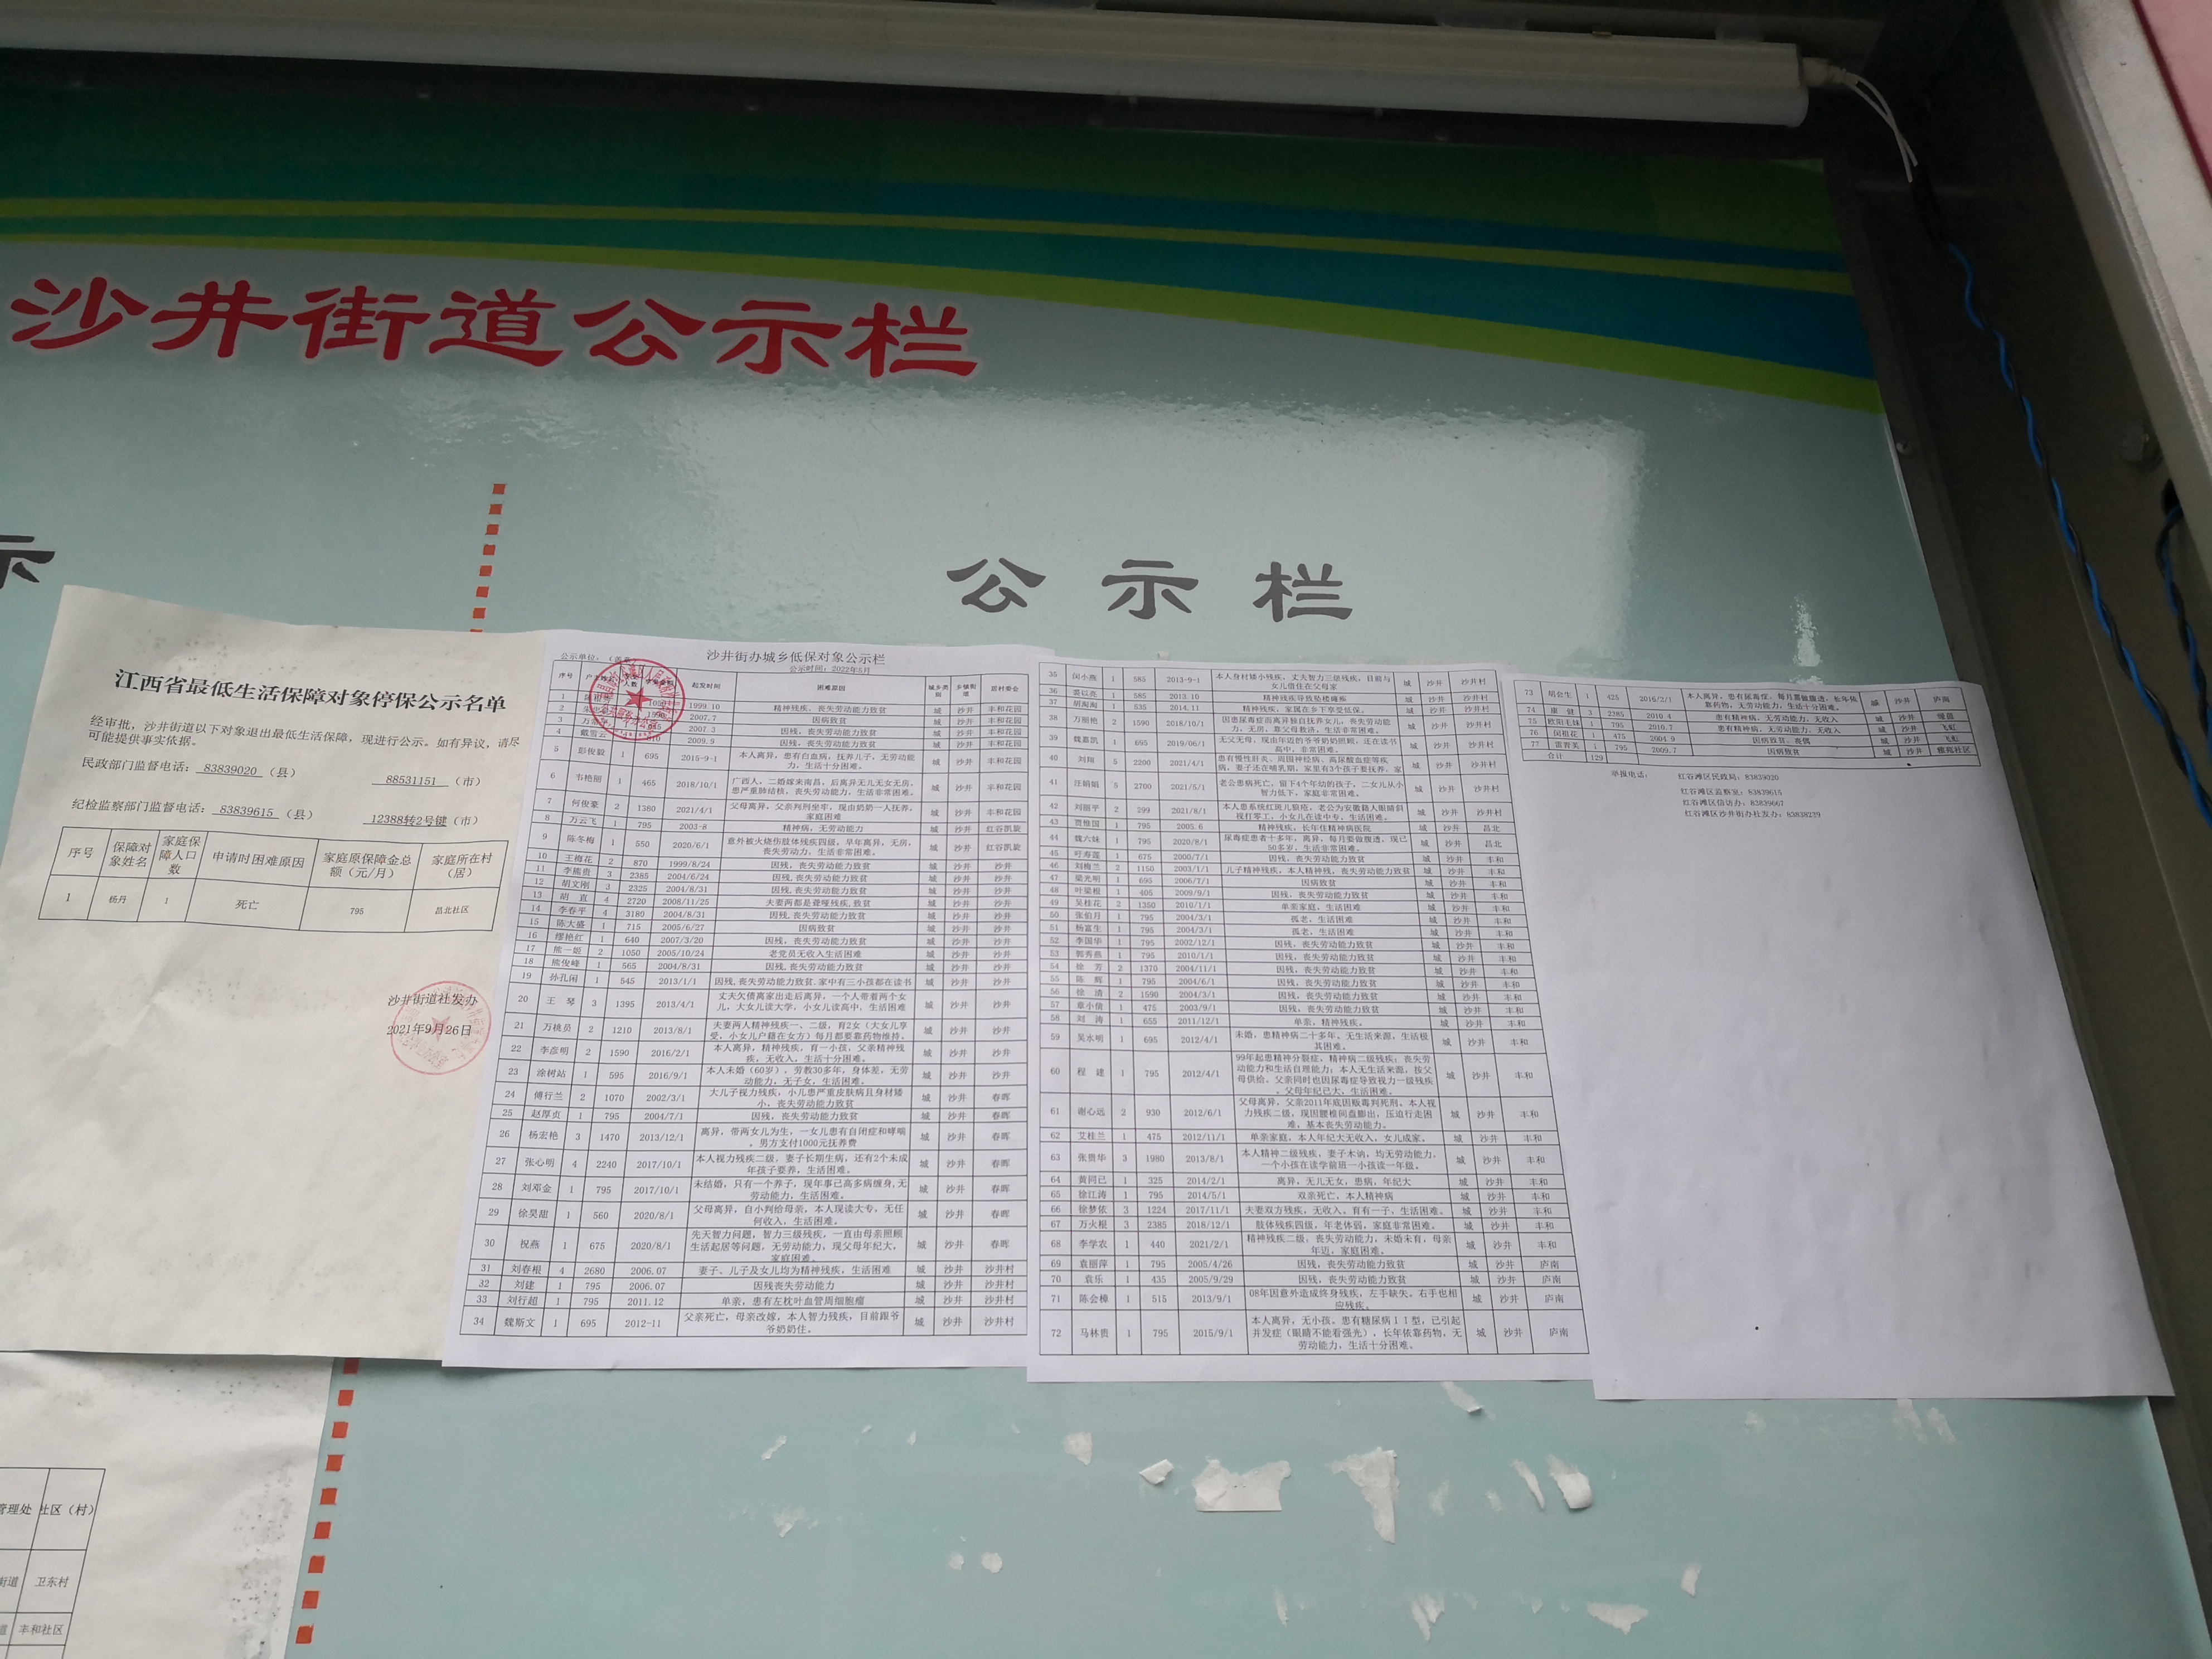 沙井街道公示栏
示
公示栏
江西省最低生活保障对象停保公示名单
经审批，沙井街道以下对象退出最低生活保障，现进行公示。如有异议，请尽
可能提供事实依据。
民政部门监督电话：83839020（县） 88531151（市）
纪检监察部门监督电话：83839615（县） 12388转2号键（市）
序号 保障对象姓名 家庭保障人口数 申请时困难原因 家庭原保障金总额（元/月） 家庭所在村（居）
1 杨丹 1 死亡 795 昌北社区
沙井街道社发办
2021年9月26日
管理处 社区（村）
街道 卫东村
道 丰和社区
沙井街办城乡低保对象公示栏
公示单位：
公示时间：2022年5月
序号 人数 起发时间 困难原因 城乡类别 乡镇街道 居村委会
1 1999.10 精神残疾，丧失劳动能力致贫 城 沙井 丰和花园
2 2007.7 因病致贫 城 沙井 丰和花园
3 2007.3 因残，丧失劳动能力致贫 城 沙井 丰和花园
4 戴雪云 2009.9 因残，丧失劳动能力致贫 城 沙井 丰和花园
5 彭俊毅 1 695 2015-9-1 本人离异，患有白血病，抚养儿子，无劳动能力，生活十分困难。 城 沙井 丰和花园
6 韦艳丽 1 465 2018/10/1 广西人，二婚嫁来南昌，后离异无儿无女无房，患严重肺结核，丧失劳动能力，生活非常困难。 城 沙井 丰和花园
7 何俊豪 2 1380 2021/4/1 父母离异，父亲判刑坐牢，现由奶奶一人抚养，家庭困难 城 沙井 丰和花园
8 万云飞 1 795 2003-8 精神病，无劳动能力 城 沙井 红谷凯旋
9 陈冬梅 1 550 2020/6/1 意外被火烧伤肢体残疾四级，早年离异，无房，丧失劳动力，生活非常困难。 城 沙井 红谷凯旋
10 王梅花 2 870 1999/8/24 因残，丧失劳动能力致贫 城 沙井 沙井
11 李熊贵 3 2385 2004/6/24 因残，丧失劳动能力致贫 城 沙井 沙井
12 胡文刚 3 2325 2004/8/31 因残，丧失劳动能力致贫 城 沙井 沙井
13 胡直 4 2720 2008/11/25 夫妻两都是聋哑残疾,致贫 城 沙井 沙井
14 李春平 4 3180 2004/8/31 因残,丧失劳动能力致贫 城 沙井 沙井
15 陈大盛 1 715 2005/6/27 因病致贫 城 沙井 沙井
16 缪艳红 1 640 2007/3/20 因残，丧失劳动能力致贫 城 沙井 沙井
17 熊一姬 2 1050 2005/10/24 老党员无收入生活困难 城 沙井 沙井
18 熊俊峰 1 565 2004/8/31 因残,丧失劳动能力致贫 城 沙井 沙井
19 孙孔闲 1 545 2013/1/1 因残,丧失劳动能力致贫,家中有三小孩都在读书 城 沙井 沙井
20 王琴 3 1395 2013/4/1 丈夫欠债离家出走后离异，一个人带着两个女儿，大女儿读大学，小女儿读高中，生活困难 城 沙井 沙井
21 万桃员 2 1210 2013/8/1 夫妻两人精神残疾一、二级，育2女（大女儿享受，小女儿户籍在女方）每月都要靠药物维持。 城 沙井 沙井
22 李彦明 2 1590 2016/2/1 本人离异，精神残疾，有一小孩，父亲精神残疾，无收入，生活十分困难。 城 沙井 沙井
23 涂树站 1 595 2016/9/1 本人未婚（60岁），劳教30多年，身体差，无劳动能力，无子女，生活困难。 城 沙井 沙井
24 傅行兰 2 1070 2002/3/1 大儿子视力残疾，小儿患严重皮肤病且身材矮小，丧失劳动能力致贫 城 沙井 春晖
25 赵厚贞 1 795 2004/7/1 因残，丧失劳动能力致贫 城 沙井 春晖
26 杨宏艳 3 1470 2013/12/1 离异，带两女儿为生，一女儿患有自闭症和哮喘，男方支付1000元抚养费 城 沙井 春晖
27 张心明 4 2240 2017/10/1 本人视力残疾二级，妻子长期生病，还有2个未成年孩子要养，生活困难。 城 沙井 春晖
28 刘邓金 1 795 2017/10/1 未结婚，只有一个养子，现年事已高多病缠身,无劳动能力，生活困难。 城 沙井 春晖
29 徐昊甜 1 560 2020/8/1 父母离异，自小判给母亲，本人现读大专，无任何收入，生活困难。 城 沙井 春晖
30 祝燕 1 675 2020/8/1 先天智力问题，智力三级残疾，一直由母亲照顾生活起居等问题，无劳动能力，现父母年纪大，家庭困难。 城 沙井 春晖
31 刘春根 4 2680 2006.07 妻子、儿子及女儿均为精神残疾，生活困难 城 沙井 沙井村
32 刘建 1 795 2006.07 因残丧失劳动能力 城 沙井 沙井村
33 刘行超 1 795 2011.12 单亲，患有左枕叶血管周细胞瘤 城 沙井 沙井村
34 魏斯文 1 695 2012-11 父亲死亡，母亲改嫁，本人智力残疾，目前跟爷爷奶奶住。 城 沙井 沙井村
35 闵小燕 1 585 2013-9-1 本人身材矮小残疾，丈夫智力三级残疾，目前与女儿借住在父母家 城 沙井 沙井村
36 裘以亮 1 585 2013.10 精神残疾导致坠楼瘫痪 城 沙井 沙井村
37 胡淘淘 1 535 2014.11 精神残疾，家属在乡下享受低保。 城 沙井 沙井村
38 万丽艳 2 1590 2018/10/1 因患尿毒症而离异独自抚养女儿，丧失劳动能力，无房，靠父母救济，生活非常困难。 城 沙井 沙井村
39 魏嘉凯 1 695 2019/06/1 无父无母，现由年迈的爷爷奶奶照顾，还在读书高中，非常困难。 城 沙井 沙井村
40 刘翔 5 2200 2021/4/1 患有慢性肝炎、周围神经病、高尿酸血症等疾病，妻子还在哺乳期，家里有3个孩子要抚养，家 城 沙井 沙井村
41 汪娟娟 5 2700 2021/5/1 老公患病死亡，留下4个年幼的孩子，二女儿从小智力低下，家庭非常困难。 城 沙井 沙井村
42 刘丽平 2 299 2021/8/1 本人患系统红斑儿狼疮，老公为安徽籍人眼睛斜视打零工，小女儿在读中专，生活困难。 城 沙井 沙井村
43 贾维国 1 795 2005.6 精神残疾，长年住精神病医院 城 沙井 昌北
44 魏六妹 1 795 2020/8/1 尿毒症患者十多年，离异，每月要做腹透，现已50多岁，生活非常困难。 城 沙井 昌北
45 叶寿莲 1 675 2000/7/1 因残，丧失劳动能力致贫 城 沙井 丰和
46 刘梅兰 2 1150 2003/1/1 儿子精神残疾，本人精神残，丧失劳动能力致贫 城 沙井 丰和
47 梁光明 1 695 2006/7/1 因病致贫 城 沙井 丰和
48 叶梁根 1 405 2009/9/1 因残，丧失劳动能力致贫 城 沙井 丰和
49 吴桂花 2 1350 2010/1/1 单亲家庭，生活困难 城 沙井 丰和
50 张伯月 1 795 2004/3/1 孤老，生活困难 城 沙井 丰和
51 杨富生 1 795 2004/3/1 孤老，生活困难 城 沙井 丰和
52 李国华 1 795 2002/12/1 因残，丧失劳动能力致贫 城 沙井 丰和
53 郭秀燕 1 795 2010/1/1 因残，丧失劳动能力致贫 城 沙井 丰和
54 徐芳 2 1370 2004/11/1 因残，丧失劳动能力致贫 城 沙井 丰和
55 陈辉 1 795 2004/6/1 因残，丧失劳动能力致贫 城 沙井 丰和
56 徐清 2 1590 2004/3/1 因残，丧失劳动能力致贫 城 沙井 丰和
57 章小倩 1 475 2003/9/1 因残，丧失劳动能力致贫 城 沙井 丰和
58 刘涛 1 655 2011/12/1 单亲，精神残疾。 城 沙井 丰和
59 吴水明 1 695 2012/4/1 未婚，患精神病二十多年。无生活来源，生活极其困难。 城 沙井 丰和
60 程建 1 795 2012/4/1 99年起患精神分裂症，精神病二级残疾；丧失劳动能力和生活自理能力；本人无生活来源，按父母供给。父亲同时也因尿毒症导致视力一级残疾，父母年纪已大，生活困难。 城 沙井 丰和
61 谢心远 2 930 2012/6/1 父母离异，父亲2011年底因贩毒判死刑。本人视力残疾二级，现因腰椎间盘膨出，压迫行走困难，基本丧失劳动能力。 城 沙井 丰和
62 艾桂兰 1 475 2012/11/1 单亲家庭，本人年纪大无收入，女儿成家。 城 沙井 丰和
63 张贵华 3 1980 2013/8/1 本人精神二级残疾，妻子木讷，均无劳动能力，一个小孩在读学前班一小孩读一年级。 城 沙井 丰和
64 黄同已 1 325 2014/2/1 离异，无儿无女，患病，年纪大 城 沙井 丰和
65 徐江涛 1 795 2014/5/1 双亲死亡，本人精神病 城 沙井 丰和
66 徐梦依 3 1224 2017/11/1 夫妻双方残疾，无收入。育有一子，生活困难。 城 沙井 丰和
67 万火根 3 2385 2018/12/1 肢体残疾四级，年老体弱，家庭非常困难。 城 沙井 丰和
68 李学农 1 440 2021/2/1 精神残疾二级，丧失劳动能力，未婚未育，母亲年迈，家庭困难。 城 沙井 丰和
69 袁丽萍 1 795 2005/4/26 因残，丧失劳动能力致贫 城 沙井 庐南
70 袁乐 1 435 2005/9/29 因残，丧失劳动能力致贫 城 沙井 庐南
71 陈会樟 1 515 2013/9/1 08年因意外造成终身残疾，左手缺失。右手也相应残疾。 城 沙井 庐南
72 马林贵 1 795 2015/9/1 本人离异，无小孩。患有糖尿病11型，已引起并发症（眼睛不能看强光），长年依靠药物，无劳动能力，生活十分困难。 城 沙井 庐南
73 胡会生 1 425 2016/2/1 本人离异，患有尿毒症，每月需做腹透，长年依靠药物，无劳动能力，生活十分困难。 城 沙井 庐南
74 康健 3 2385 2010.4 患有精神病，无劳动能力，无收入 城 沙井
75 欧阳毛妹 1 795 2010.7 患有精神病，无劳动能力，无收入 城 沙井 飞虹
76 闵祖花 1 475 2004.9 因病致贫、丧偶 城 沙井 飞虹
77 雷菁芙 1 795 2009.7 因病致贫 城 沙井 社区
合计 129
举报电话： 红谷滩区民政局：83839020
红谷滩区监察室：83839615
红谷滩区信访办：83839667
红谷滩区沙井街办社发办：83838239